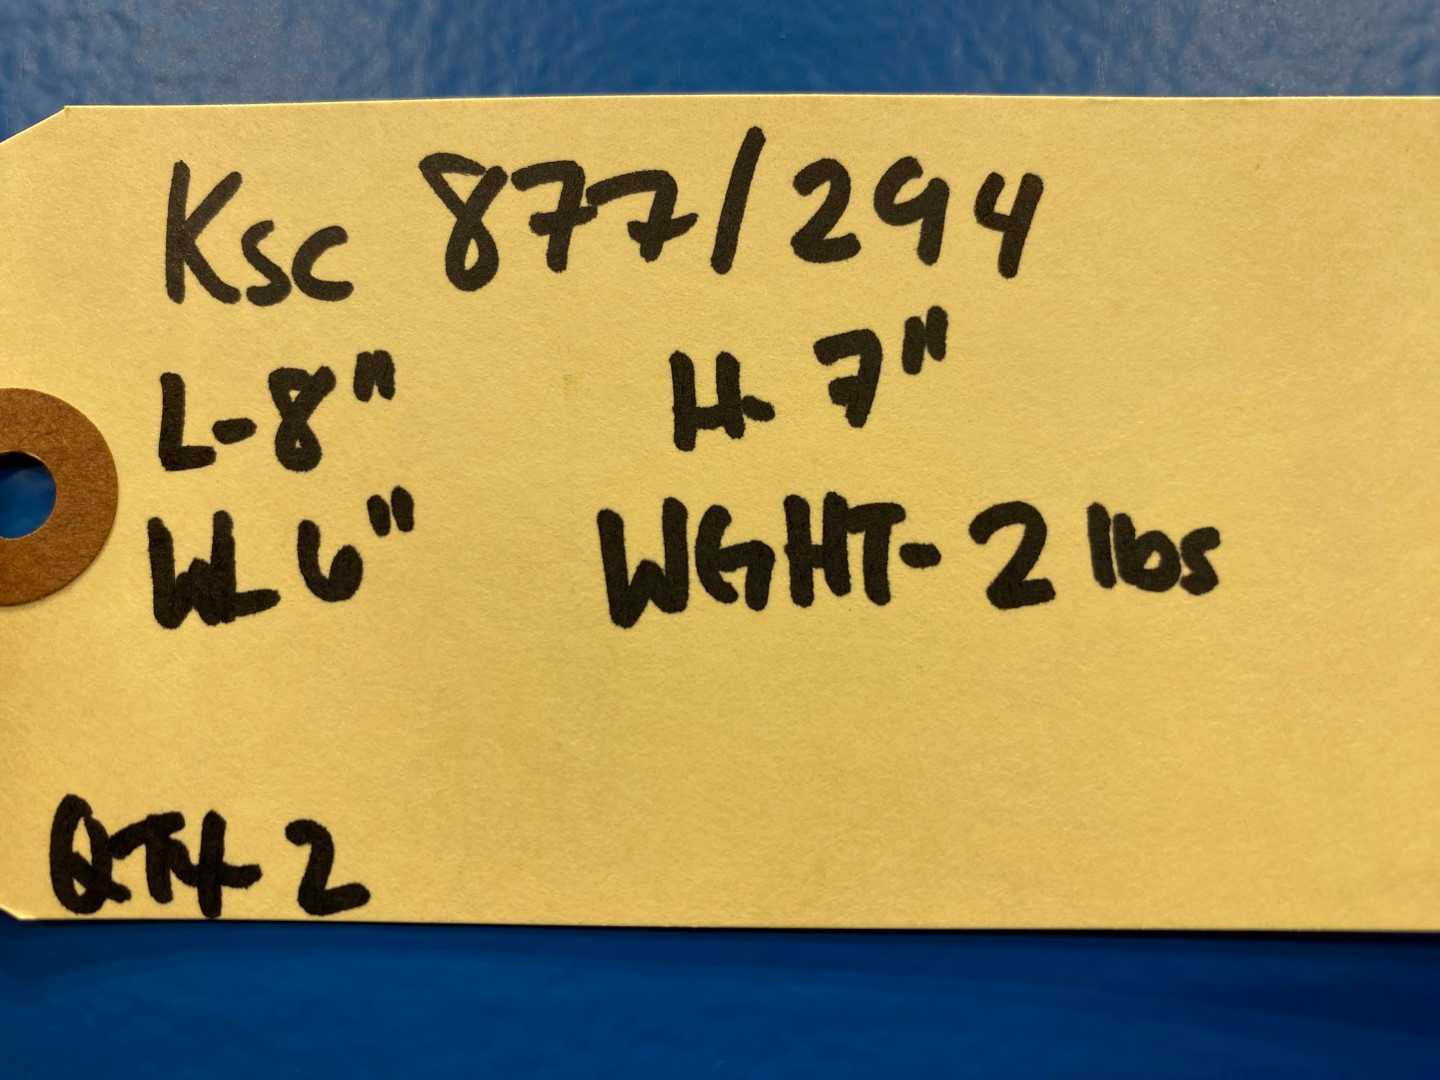 Ksc 877/294
L-8" H- 7"
W- 6" WGHT- 2 lbs
QTY- 2